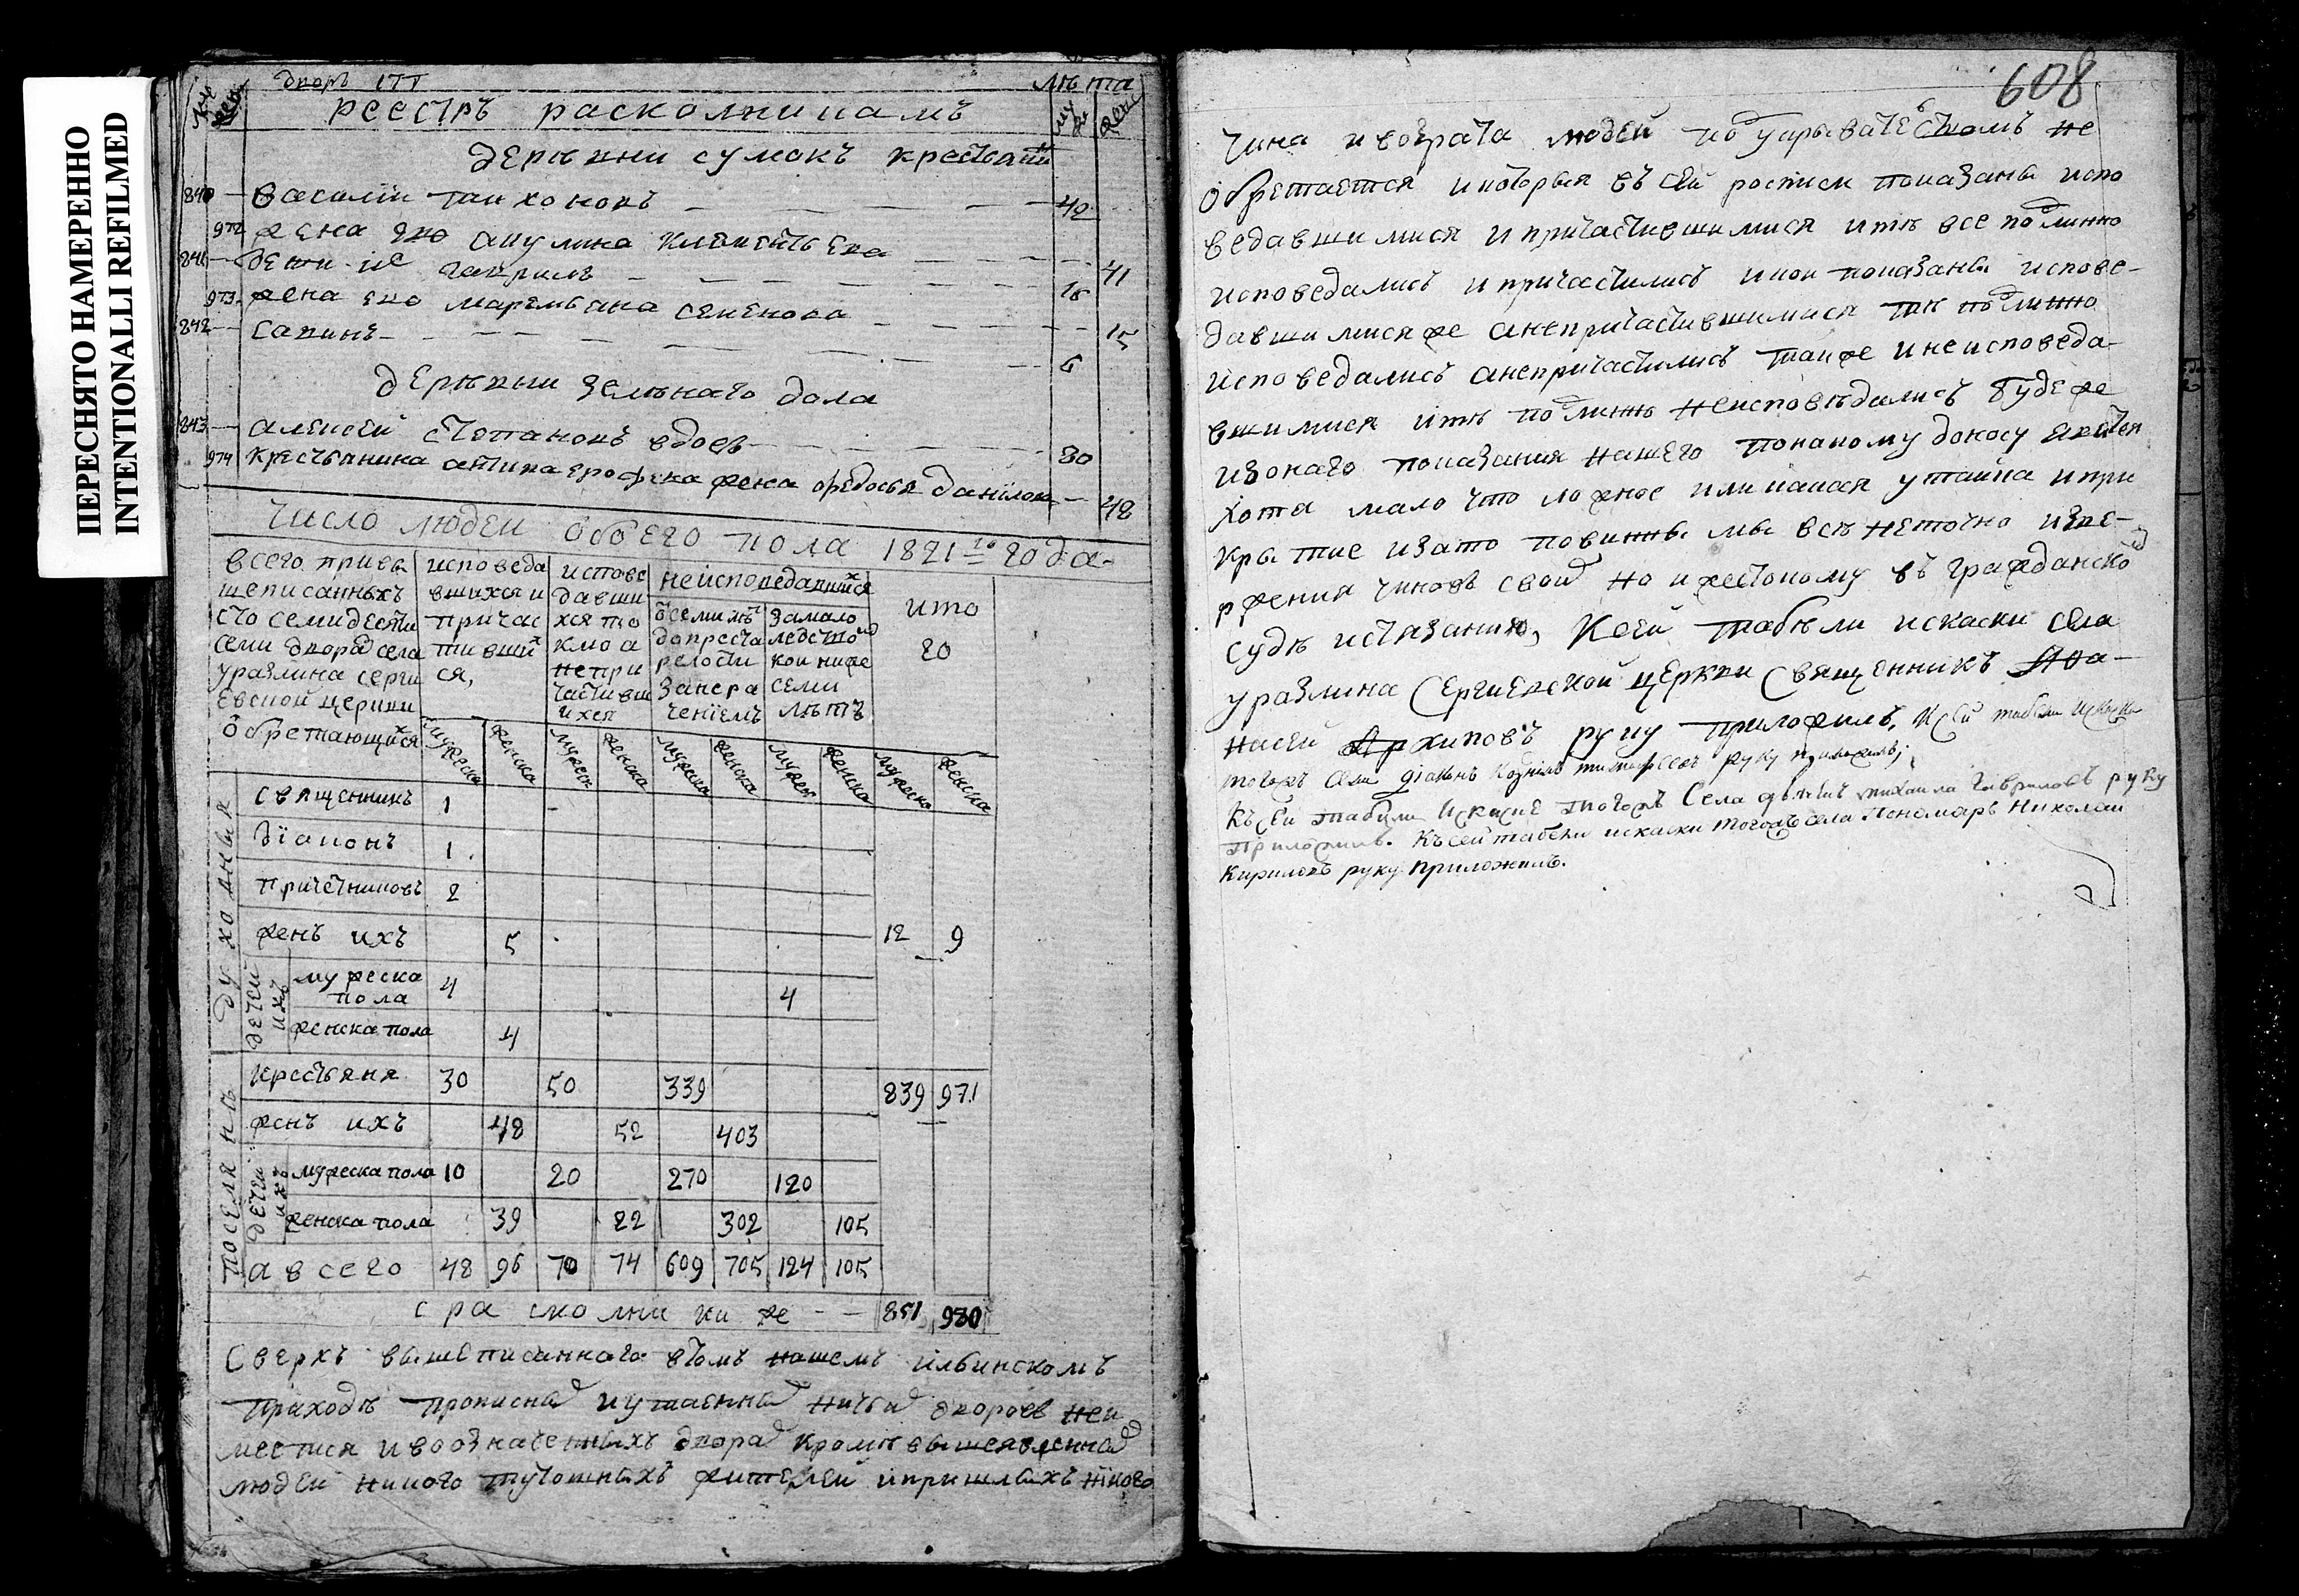 ПЕРЕСНЯТО НАМЕРЕННО
INTENTIONALLI REFILMED
дворъ 177
лѣта
реестръ расколникамъ
деревни сумокъ крестьяни
840 василіи тихоновъ 42
972 жена его акулина климентьева 41
841 дети ие гаврилъ 18
973 жена ево маремьяна семенова 15
842 савинъ 6
деревни зелѣнаго дола
843 алексеи степановъ вдовъ 80
974 крестьянина антипа ерофеева жена федосья данилова 48
число людеи обоего пола 1821го года
всего при вы
шеписанныхъ
сто семидесяти
семи двора села
уразлина серги
евской церкви
обретающихся
исповеда
вшихся и
причас
тивших
ся,
испове
давши
хся то
кмо а
непри
частивши
ихся
неисповедавшихся
седмилѣт
до преста
релости
замало
летство
кои ниже
семи
лѣтъ
ито
го
мужеска женска мужеск женска мужеска женска мужеск женска мужеска женска
духовныя
священникъ 1
діаконъ 1
причетниковъ 2
женъ ихъ 5 12 9
детей ихъ
мужеска пола 4 4
женска пола 4
поселянъ
крестьяня 30 50 339 839 971
женъ ихъ 48 52 403
детей ихъ
мужеска пола 10 20 270 120
женска пола 39 22 302 105
а всего 48 96 70 74 609 705 124 105
с расколники же 851 980
Сверхъ вышеписаннаго втомъ нашемъ ильинскомъ
приходѣ прописных и утаенных ничьих дворовъ неи
меется и воозначенныхъ двора кромѣ вышеявленных
людеи никого тутошныхъ жителей и пришлыхъ никого
608
чина и возраста людей по укрывателствомъ не
обретается и которыя въ сей росписи показаны испо
ведавшимися и причастившимися и тѣ все подлинно
исповедались и причастились и кои показаны испове-
давшимися же а непричастившимися так подлинно
исповедались а непричастились также и неисповеда-
вшимися и тѣ подлиннъ неисповѣдались буде же
изонаго показания нашего по какому доносу явится
хотя мало что ложное или какая утайка и при
крытие и за то повинны мы всѣ неточно извер-
ржения чиновъ своих но и жестокому въ гражданском
судѣ истязанию, К сей табѣли искаски села
уразлина Сергиевской церкви священникъ Афа-
насей Архиповъ руку приложилъ. К сей табели искаски
тогожъ села діаконъ руку приложилъ;
Къ сей табели искаске тогожъ села дьячокъ михаила гавриловъ руку
приложилъ. Къ сей табели искаски тогожъ села Пономарь Николаи
Кириловъ руку приложилъ.